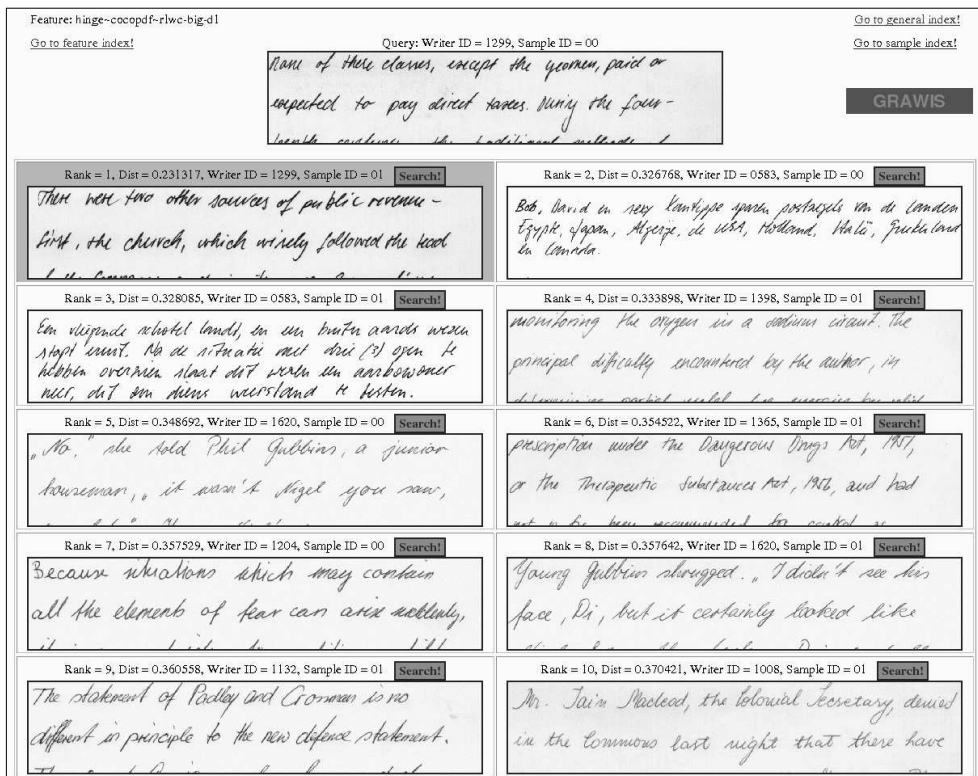 Feature: hinge~cocopdf~rlwc-big-d1
Go to general index!
Go to feature index!
Query: Writer ID = 1299, Sample ID = 00
Go to sample index!
None of these classes, except the yeomen, paid or
expected to pay direct taxes. During the four-
GRAWIS
Rank = 1, Dist = 0.231317, Writer ID = 1299, Sample ID = 01 Search!
There were two other sources of public revenue –
first, the church, which wisely followed the lead
Rank = 2, Dist = 0.326768, Writer ID = 0583, Sample ID = 00 Search!
Bob, David en sexy Xantippe sparen postzegels van de landen
Egypte, Japan, Algerije, de USA, Holland, Italië, Griekenland
en Canada.
Rank = 3, Dist = 0.328085, Writer ID = 0583, Sample ID = 01 Search!
Een vliegende schotel landt, en een buiten aards wezen
stapt eruit. Na de situatie met drie (3) ogen te
hebben overzien slaat dit wezen een aardbewoner
neer, dit om diens weerstand te testen.
Rank = 4, Dist = 0.333898, Writer ID = 1398, Sample ID = 01 Search!
monitoring the oxygen in a sodium circuit. The
principal difficulty encountered by the author, in
Rank = 5, Dist = 0.348692, Writer ID = 1620, Sample ID = 00 Search!
„No," she told Phil Gubbins, a junior
houseman, „ it wasn't Nigel you saw,
Rank = 6, Dist = 0.354522, Writer ID = 1365, Sample ID = 01 Search!
prescription under the Dangerous Drugs Act, 1951,
or the Therapeutic Substances Act, 1956, and had
Rank = 7, Dist = 0.357529, Writer ID = 1204, Sample ID = 00 Search!
Because situations which may contain
all the elements of fear can arise suddenly,
Rank = 8, Dist = 0.357642, Writer ID = 1620, Sample ID = 01 Search!
Young Gubbins shrugged. „ I didn't see his
face, Di, but it certainly looked like
Rank = 9, Dist = 0.360558, Writer ID = 1132, Sample ID = 01 Search!
The statement of Padley and Crosman is no
different in principle to the new defence statement.
Rank = 10, Dist = 0.370421, Writer ID = 1008, Sample ID = 01 Search!
Mr. Iain Macleod, the Colonial Secretary, denied
in the Commons last night that there have